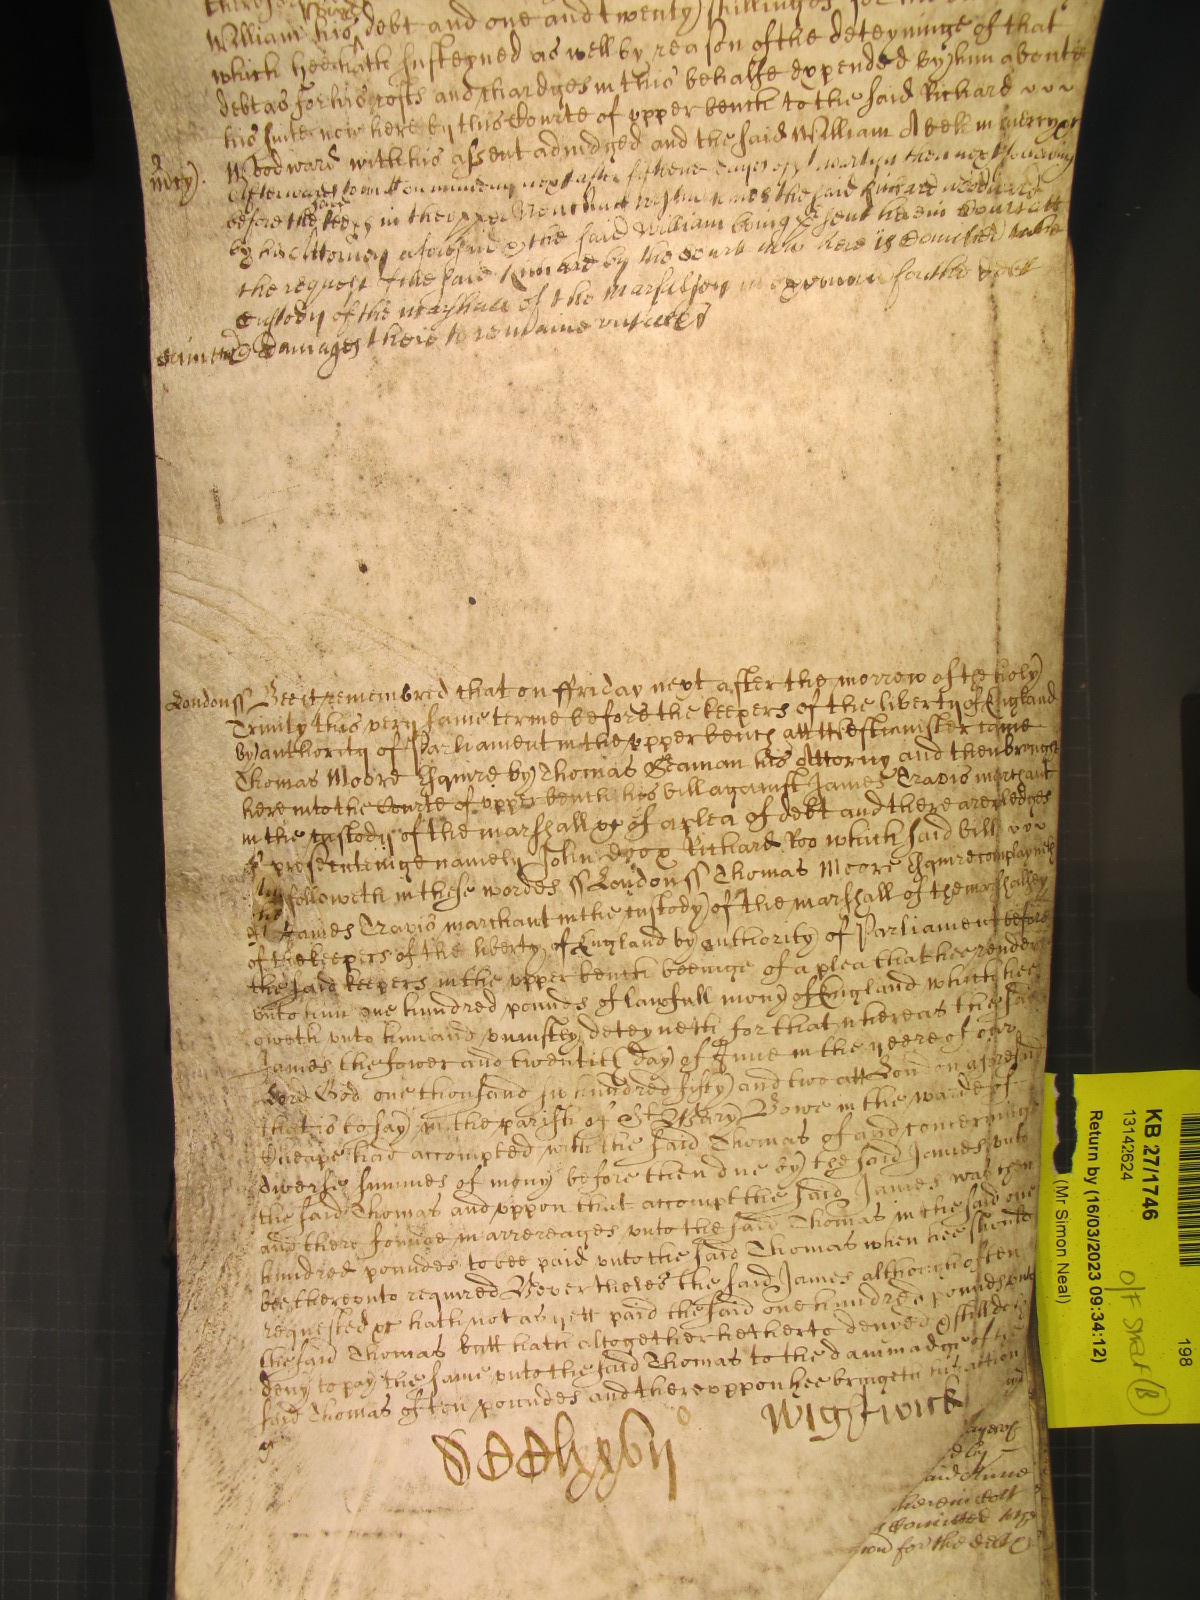 William his debt and one and twenty shillings for
which hee hath susteyned as well by reason of the deteyninge of that
debt as for his costs and chardges in this behalfe expended by him aboute
his suite now here by this Courte of upper bench to the said Richard
Woodward with his assent adiudged and the said William Abell in mercy &c
mcy
Afterwards to witt on munday next after fifteene dayes of St Martyn then next followinge
before the said keep's in the upper bench att westm' comes the said Richard woodward
by his Attorney aforesaid & the said William being p'sent here in Court att
the request of the said Richard by the Court now here is Comitted to the
Custody of the marshall of the marshalsey in execucion for the debt
Comitted & damages there to remaine untill &c
London ss Bee it remembred that on ffriday next after the morrow of the holy
Trinity this very same terme before the keepers of the liberty of England
by authority of Parliament in the upper bench att Westminster came
Thomas Moore Esquire by Thomas Seaman his Attorny and then brought
here into the Courte of upper bench his bill against James Travis marchant
in the custody of the marshall &c of a plea of debt and there are pledges
of prosecutinge namely John Doo & Richard Roo which said bill
followeth in these wordes ss London ss Thomas Moore Esquire complayneth
of James Travis marchant in the custody of the marshall of the marshallsey
of the keepers of the liberty of England by authority of Parliament before
the said keepers in the upper bench beeinge of a plea that hee render
unto him one hundred pounds of lawfull mony of England which hee
oweth unto him and uniustly deteyneth for that whereas the said
James the fower and twentith day of June in the yeere of our
Lord God one thousand six hundred fifty and two att London aforesaid
that is to say in the parish of St Mary Bowe in the warde of
Cheape had accompted with the said Thomas of and concerninge
diverse summes of mony before then due by the said James unto
the said Thomas and uppon that accompt the said James was then
and there founde in arrereages unto the said Thomas in the said one
hundred poundes to bee paid unto the said Thomas when hee should
bee thereunto required Neverthelesse the said James although often
requested &c hath not as yett paid the said one hundred pounds unto
the said Thomas butt hath altogether hetherto denyed & still doth
deny to pay the same unto the said Thomas to the dammadge of the
said Thomas of ten poundes and thereuppon hee bringeth his action
&c
Wightwick
said
here in Court
Comitted to the
for the debt &
KB 27/1746
13142624
Return by (16/03/2023 09:34:12)
(Mr Simon Neal)
198